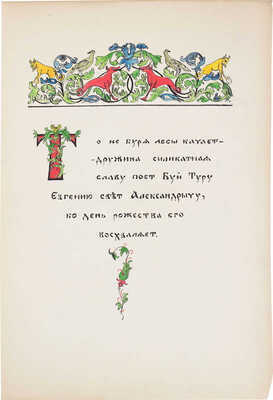 То не буря лесы клулет-
-дружина силикатная
славу поет Буй Туру
Евгению свет Александрычу,
во день рожества его
восхваляет.